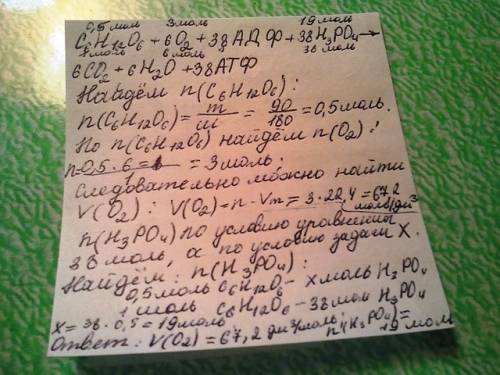 0,5 моль 3 моль 19 моль
C6H12O6 + 6O2 + 38 АДФ + 38H3PO4 →
1 моль 6 моль 38 моль
6CO2 + 6H2O + 38АТФ
Найдём n(C6H12O6):
n(C6H12O6) = m/M = 90/180 = 0,5 моль.
По n(C6H12O6) найдём n(O2):
n = 0,5 · 6 / 1 = 3 моль;
Следовательно можно найти
V(O2): V(O2) = n · Vm = 3 · 22,4 = 67,2
моль/дм3
n(H3PO4) по условию уравнения
38 моль, а по условию задачи X.
Найдём: n(H3PO4):
0,5 моль C6H12O6 - x моль H3PO4
1 моль C6H12O6 - 38 моль H3PO4
x = 38 · 0,5 = 19 моль
Ответ: V(O2) = 67,2 дм3/моль; n(H3PO4) =
19 моль